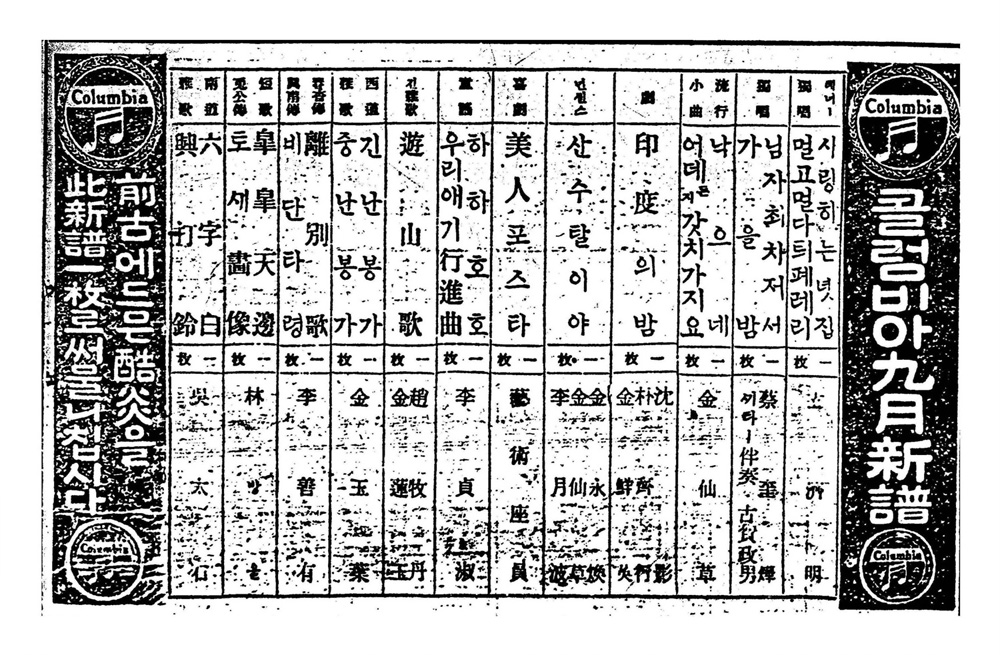 Columbia
콜럼비아九月新譜
Columbia
獨唱
멀고멀다틔페레리
一枚
明
獨唱
님자최차저서
가을밤
一枚
蔡奎燁
끼타ー伴奏 古賀政男
流行小曲
낙으네
어데론지갓치가지요
一枚
金仙草
劇
印度의밤
一枚
沈影
朴齊行
金鮮
넌센스
산수탈이야
一枚
金永煥
金仙草
李月波
喜劇
美人포스타
一枚
藝術座員
童謠
하하호호
우리애기行進曲
一枚
李貞淑
긴雜歌
遊山歌
一枚
趙牧丹
金蓮玉
西道雜歌
긴난봉가
중난봉가
一枚
金玉葉
春香傳
離別歌
비단타령
一枚
李善有
短歌
皐皐天邊
토새畵像
一枚
林방울
南道雜歌
六字白
興打鈴
一枚
吳太石
Columbia
前古에드믄酷炎을
此新譜一枚로써물니칩시다
Columbia